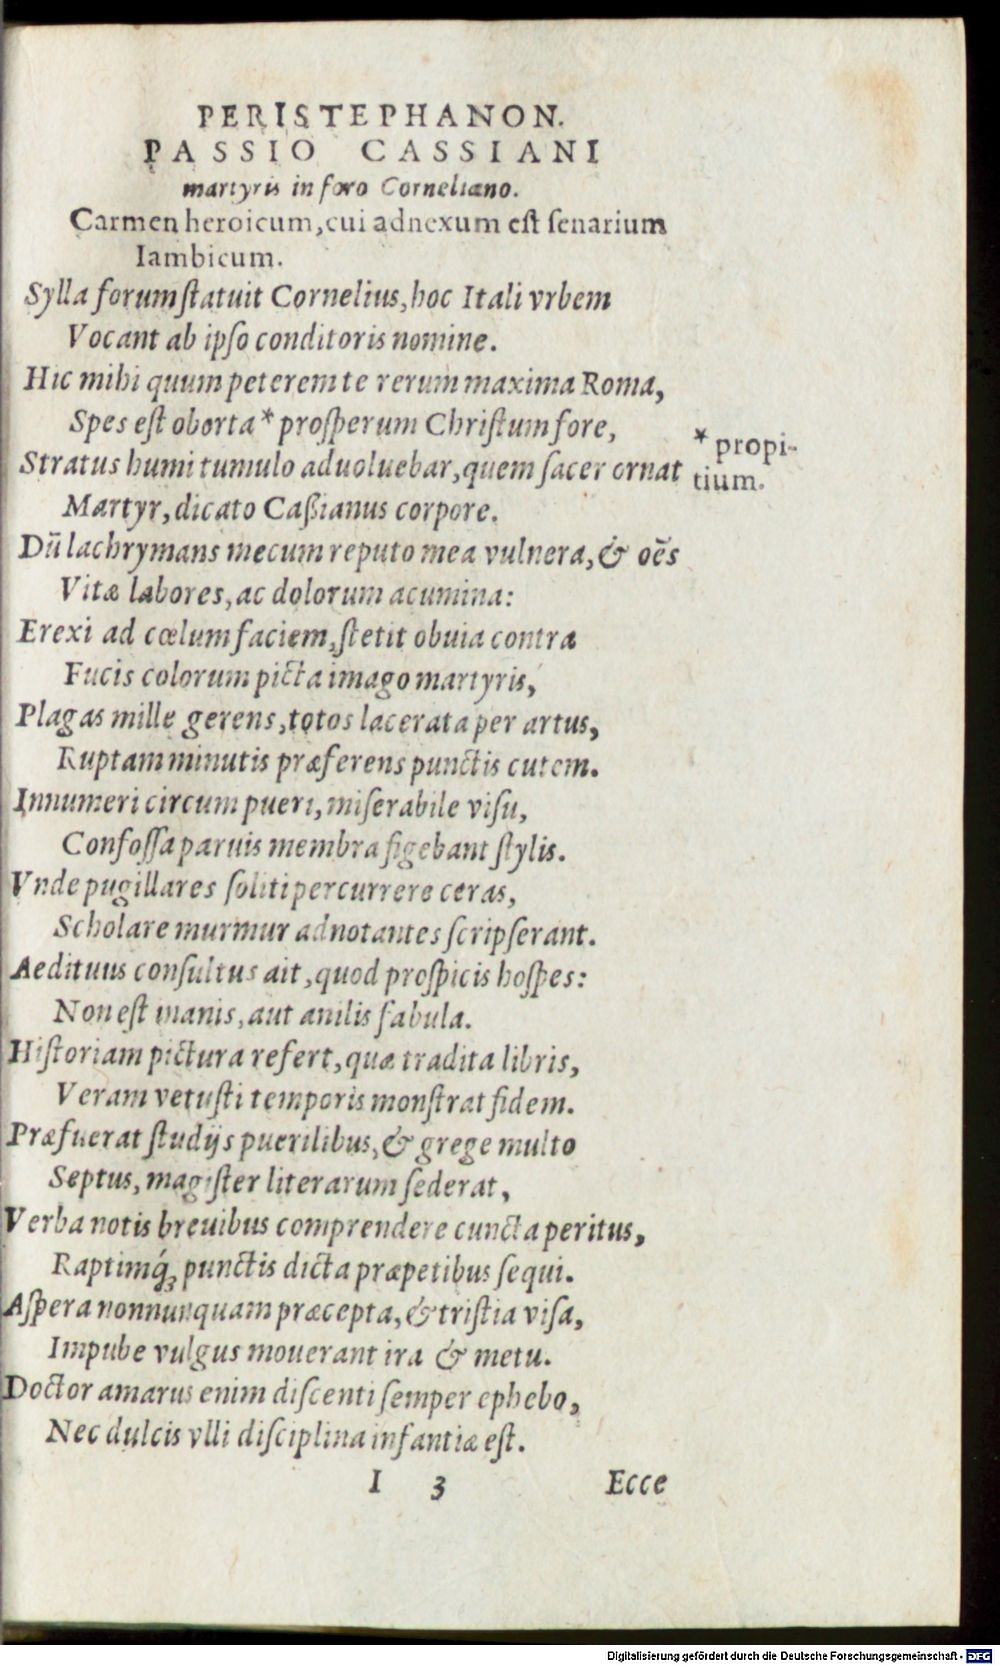 PERISTEPHANON.
PASSIO CASSIANI
martyris in foro Corneliano.
Carmen heroicum, cui adnexum est ſenarium
Iambicum.
Sylla forum ſtatuit Cornelius, hoc Itali vrbem
Vocant ab ipſo conditoris nomine.
Hic mihi quum peterem te rerum maxima Roma,
Spes eſt oborta * proſperum Chriſtum fore,
* propi-
Stratus humi tumulo aduoluebar, quem ſacer ornat
tium.
Martyr, dicato Caßianus corpore.
Dū lachrymans mecum reputo mea vulnera, & oēs
Vitæ labores, ac dolorum acumina:
Erexi ad cœlum faciem, ſtetit obuia contra
Fucis colorum picta imago martyris,
Plagas mille gerens, totos lacerata per artus,
Ruptam minutis præferens punctis cutem.
Innumeri circum pueri, miſerabile viſu,
Confoſſa paruis membra figebant ſtylis.
Vnde pugillares ſoliti percurrere ceras,
Scholare murmur adnotantes ſcripſerant.
Aedituus conſultus ait, quod proſpicis hoſpes:
Non eſt inanis, aut anilis fabula.
Hiſtoriam pictura refert, quæ tradita libris,
Veram vetuſti temporis monſtrat fidem.
Præfuerat ſtudijs puerilibus, & grege multo
Septus, magiſter literarum ſederat,
Verba notis breuibus comprendere cuncta peritus,
Raptimq́ꝫ punctis dicta præpetibus ſequi.
Aſpera nonnunquam præcepta, & triſtia viſa,
Impube vulgus mouerant ira & metu.
Doctor amarus enim diſcenti ſemper ephebo,
Nec dulcis vlli diſciplina infantiæ eſt.
I 3 Ecce
Digitalisierung gefördert durch die Deutsche Forschungsgemeinschaft - DFG